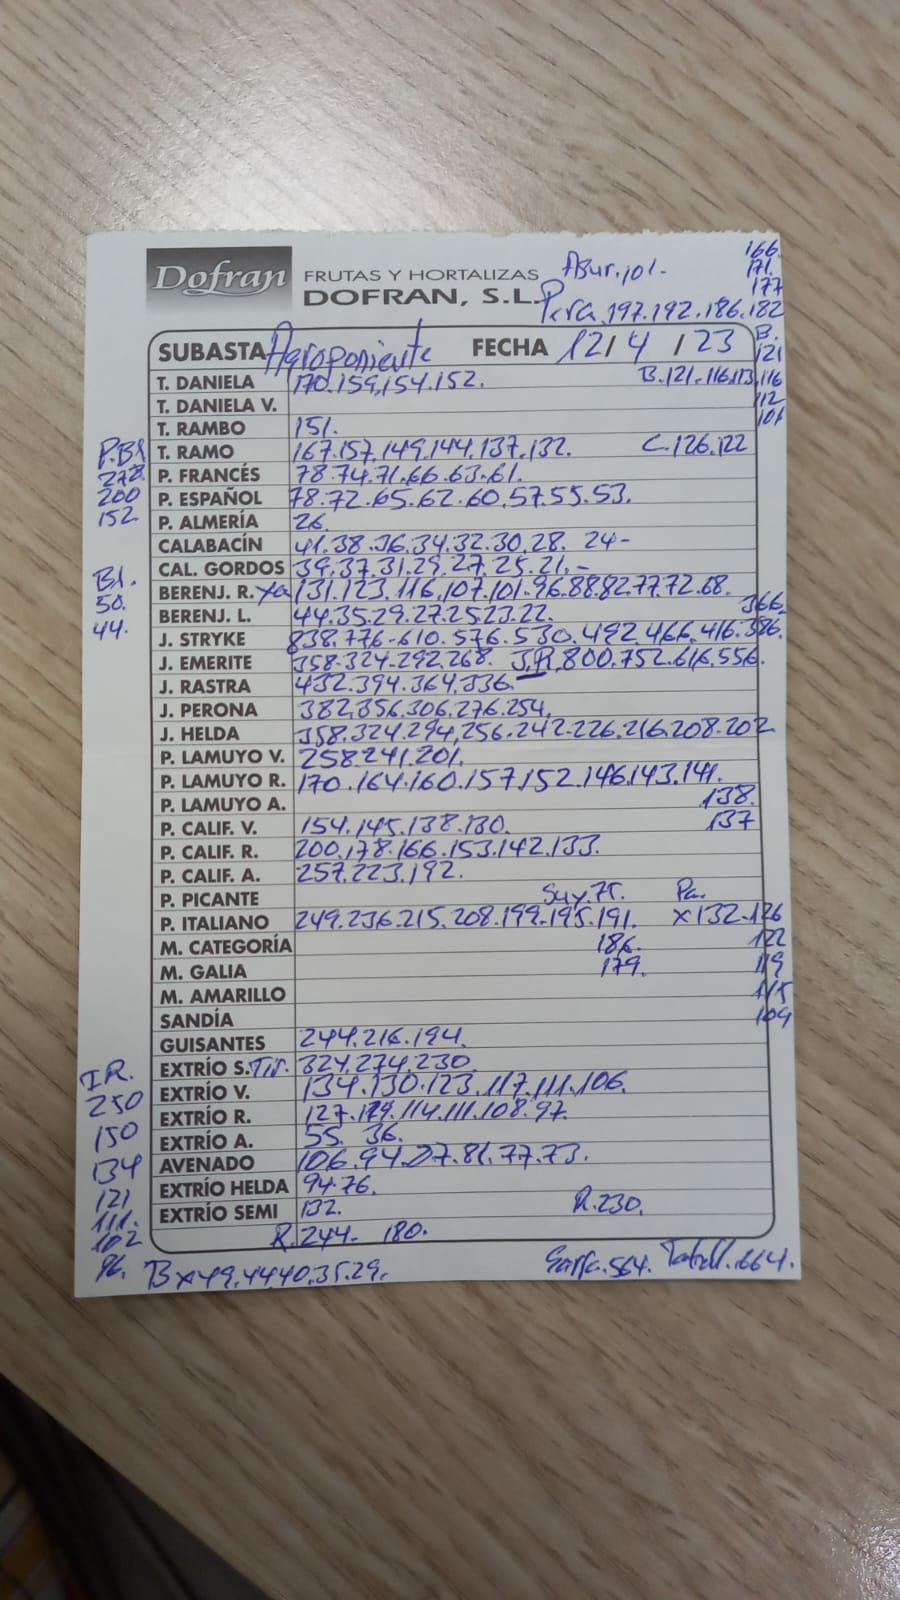 Dofran FRUTAS Y HORTALIZAS Abur.101.- 166.
DOFRAN, S.L. Pera.197.192.186.182
171.
177
SUBASTA Agroponiente FECHA 12/4/23 B.
121
T. DANIELA 170.159.154.152. B.121.116.113.116
T. DANIELA V. 112
T. RAMBO 151. 101
T. RAMO 167.157.149.144.137.132. C.126.122
P. FRANCÉS 78.74.71.66.63.61.
P. ESPAÑOL 78.72.65.62.60.57.55.53.
P. ALMERÍA 26.
CALABACÍN 41.38.36.34.32.30.28. 24-
CAL. GORDOS 39.37.31.29.27.25.21.-
BERENJ. R. 131.123.116.107.101.96.88.82.77.72.68.
BERENJ. L. 44.35.29.27.25.23.22. 366.
J. STRYKE 838.776-610.576.530.492.466.416.386.
J. EMERITE 358.324.292.268. J.R.800.752.616.556.
J. RASTRA 432.394.364.336.
J. PERONA 382.356.306.276.254.
J. HELDA 358.324.294.256.242.226.216.208.202
P. LAMUYO V. 258.241.201.
P. LAMUYO R. 170.164.160.157.152.146.143.141.
P. LAMUYO A. 138.
P. CALIF. V. 154.145.138.130. 137
P. CALIF. R. 200.178.166.153.142.133.
P. CALIF. A. 257.223.192.
P. PICANTE
P. ITALIANO 249.236.215.208.199.195.191. x132.126
M. CATEGORÍA 186. 122
M. GALIA 179. 119
M. AMARILLO 115
SANDÍA 104
GUISANTES 244.216.194.
EXTRÍO S. 324.274.230.
EXTRÍO V. 134.130.123.117.111.106.
EXTRÍO R. 114.111.108.97.
EXTRÍO A. 55. 36.
AVENADO 106.94.87.81.77.73.
EXTRÍO HELDA 94.76.
EXTRÍO SEMI 132. R.230.
R.244- 180.
Bx49.44.40.35.29. 564. 664.
200
152
B1.
50.
44.
IR.
250
150
134
121
111.
102
96.